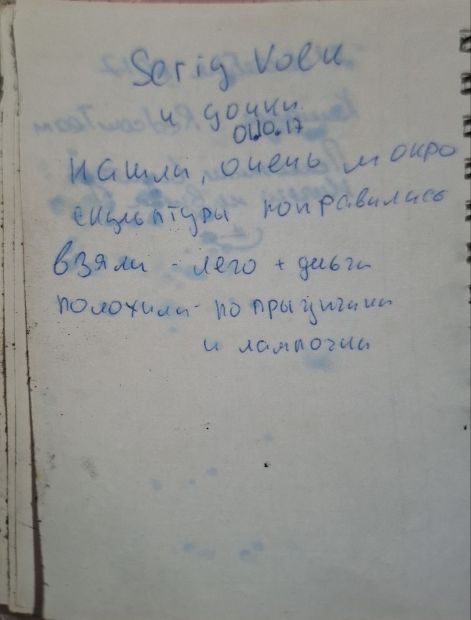 Serig Volk
и дочки
01.10.17
нашли, очень мокро
скульптуры понравились
взяли - лего + деньги
положили - попрыгички
и лампочки